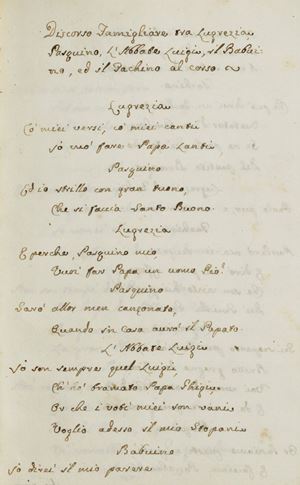 Discorso Famigliare tra Lugrezia
Pasquino, L'Abbate Luigi, il Babui
no, ed il Fachino al corso
Lugrezia
Co' miei versi, co' miei canti
Io vuo' fare Papa Lanti
Pasquino
Ed io strillo con gran tuono,
Che si faccia Santo Buono.
Lugrezia
E perche, Pasquino mio
Vuoi far Papa un uomo Pio?
Pasquino
Sarò allor men canzonato,
Quando in Casa aurò il Papato.
L'Abbate Luigi
Io son sempre quel Luigi,
Ch'hò bramato Papa Chigi
Or che i voti miei son vani
Voglio adesso il mio Stopani
Babuino
Io direi il mio parere